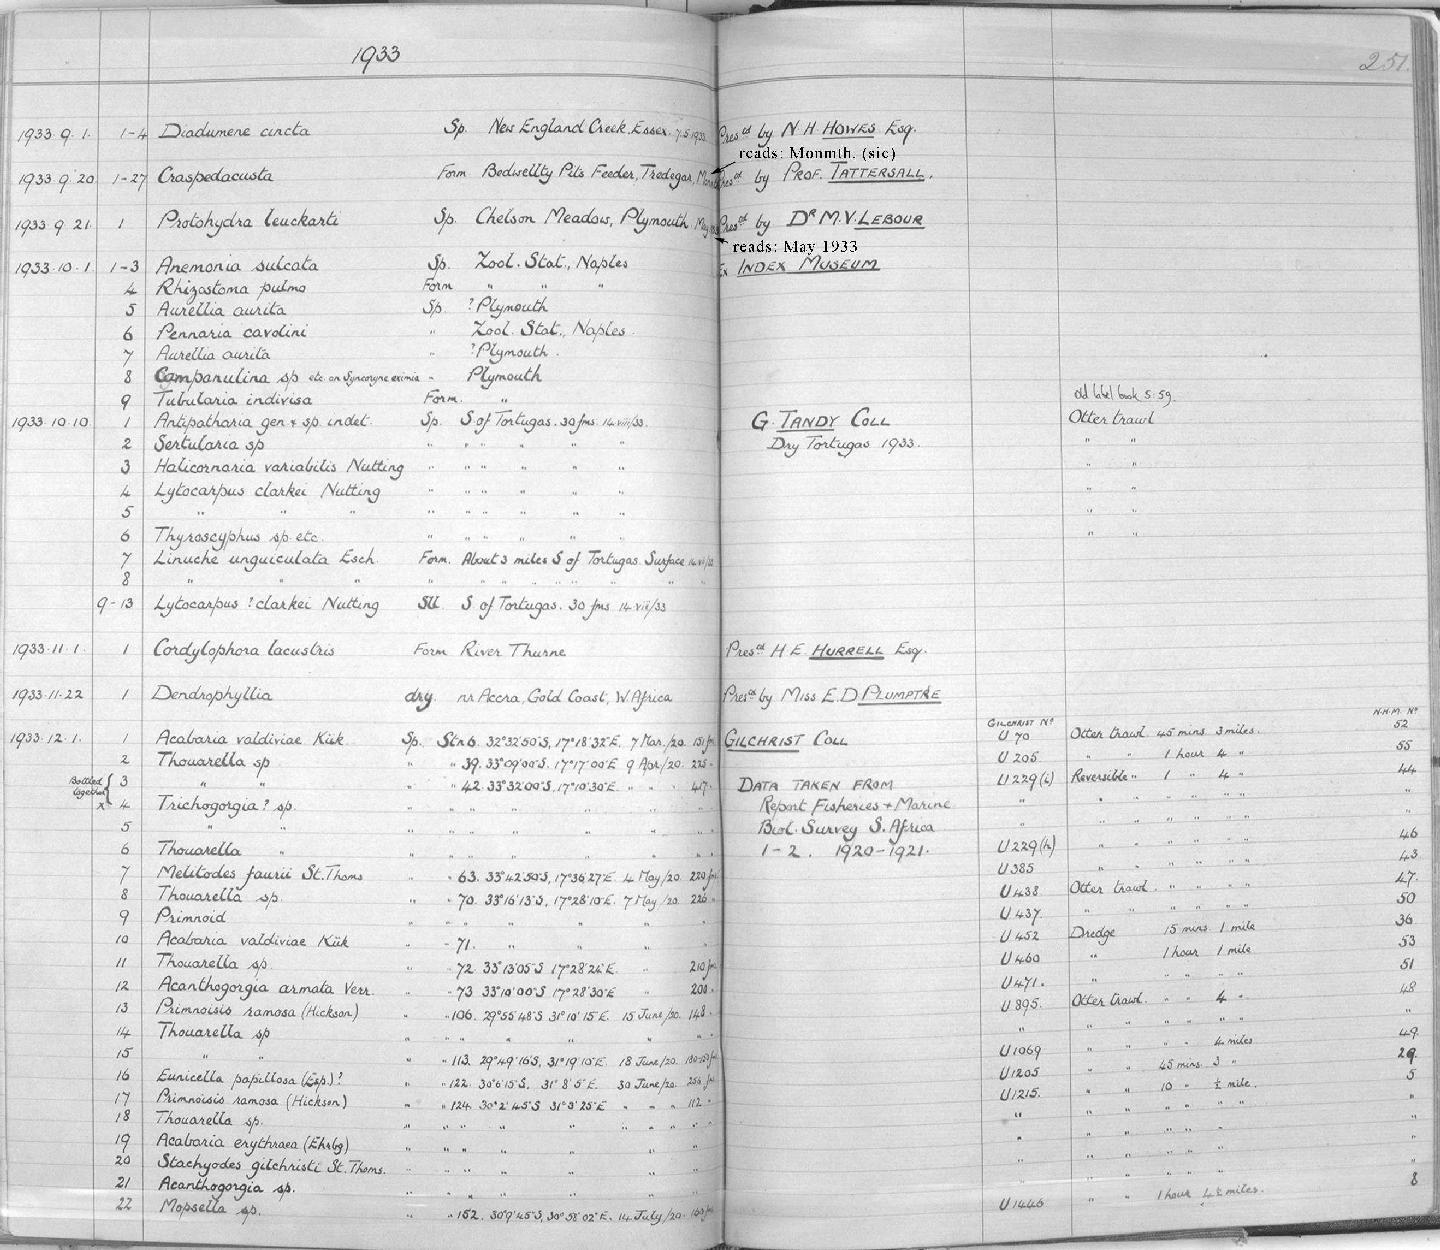 1933
251.
1933.9.1. 1-4 Diadumene cincta Sp. New England Creek. Essex. 7.5.1933. Pres.ed by N.H. HOWES Esq.
reads: Monmth. (sic)
1933.9.20 1-27 Craspedacusta Form Bedwellty Pits Feeder, Tredegar, Pres.ed by PROF. TATTERSALL.
1933.9.21. 1 Protohydra leuckarti Sp. Chelson Meadow, Plymouth. May Pres.ed by DR M.V. LEBOUR
reads: May 1933
1933.10.1 1-3 Anemonia sulcata Sp. Zool. Stat., Naples Ex INDEX MUSEUM
4 Rhizostoma pulmo Form " " "
5 Aurellia aurita Sp. ? Plymouth
6 Pennaria cavolini " Zool. Stat., Naples.
7 Aurellia aurita " ? Plymouth.
8 Campanulina sp etc. on Syncoryne eximia " Plymouth
9 Tubularia indivisa Form. " old label book 5.59.
1933.10.10 1 Antipatharia gen & sp. indet. Sp. S of Tortugas. 30 fms. 14.viii/33. G. TANDY COLL Otter trawl
2 Sertularia sp " " " " " " Dry Tortugas 1933. " "
3 Halicornaria variabilis Nutting " " " " " " " "
4 Lytocarpus clarkei Nutting " " " " " " " "
5 " " " " " " " " " " "
6 Thyroscyphus sp. etc. " " " " " " " "
7 Linuche unguiculata Esch. Form. About 3 miles S of Tortugas. Surface
8 " " " " " " " " " " "
9-13 Lytocarpus ? clarkei Nutting Sll. S of Tortugas. 30 fms. 14.vii/33
1933.11.1. 1 Cordylophora lacustris Form River Thurne Pres.ed H E. HURRELL Esq.
1933.11.22 1 Dendrophyllia dry. nr Accra, Gold Coast, W. Africa Pres.ed by MISS E.D PLUMPTRE
GILCHRIST No N.H.M. No
1933.12.1. 1 Acabaria valdiviae Kük Sp. Stn 6. 32°32'50"S, 17°18'32"E. 7 Mar./20. 151 fm. GILCHRIST COLL U 70 Otter trawl 45 mins 3 miles. 52
2 Thouarella sp " " 39. 33°09'00"S, 17°17'00"E 9 Apr/20. 225 " U 205 " " 1 hour 4 " 55
Bottled together
3 " " " 42. 33°32'00"S, 17°10'30"E. " " 417. DATA TAKEN FROM U 229 (i) Reversible " 1 " 4 " 44
x 4 Trichogorgia ? sp. " " " " " " " Report Fisheries + Marine " " " " " " "
5 " " " " " " " " " Biol. Survey S. Africa
6 Thouarella " " " " " " " " 1-2. 1920-1921. U 229 (h) " " " " " 46
7 Melitodes faurii St. Thoms " " 63. 33°42'50"S, 17°36'27"E. 4 May/20. 220 fm. U 385 " " " " " 43
8 Thouarella sp. " " 70. 33°16'13"S, 17°28'10"E. 7 May/20. 226 " U 438 Otter trawl. " " " " 47.
9 Primnoid " " " " " " U 437. " " " " " 50
10 Acabaria valdiviae Kük " " 71. " " " " U 452 Dredge 15 mins. 1 mile 36
11 Thouarella sp. " " 72. 33°13'05"S, 17°28'24"E. " 210 fm U 460 " 1 hour 1 mile 53
12 Acanthogorgia armata Verr. " " 73 33°10'00"S 17°28'30"E " 200 " U 471. " " " " 51
13 Primnoisis ramosa (Hickson) " " 106. 29°55'48"S 31°10'15"E. 15 June/20. 148 " U 895. Otter trawl. " " 4 " 48
14 Thouarella sp " " " " " " " " " " " "
15 " " " " 113. 29°49'16"S, 31°19'10"E. 18 June/20. U 1069 " " " 4 miles 49
16 Eunicella papillosa (Esp.) ? " " 122. 30°6'15"S, 31°8'5"E. 30 June/20. U 1205 " " 45 mins. 3 " 29.
17 Primnoisis ramosa (Hickson) " " 124. 30°2'45"S 31°3'25"E " " 112 " U 1215. " " 10 " ½ mile. 5
18 Thouarella sp. " " " " " " " " " " " " "
19 Acabaria erythraea (Ehrbg) " " " " " " "
20 Stachyodes gilchristi St. Thoms. " " " " " " "
21 Acanthogorgia sp. " " " " " " "
22 Mopsella sp. " " 152. 30°9'45"S, 30°58'02"E. 14 July/20. U 1446 " " 1 hour 4½ miles. 8